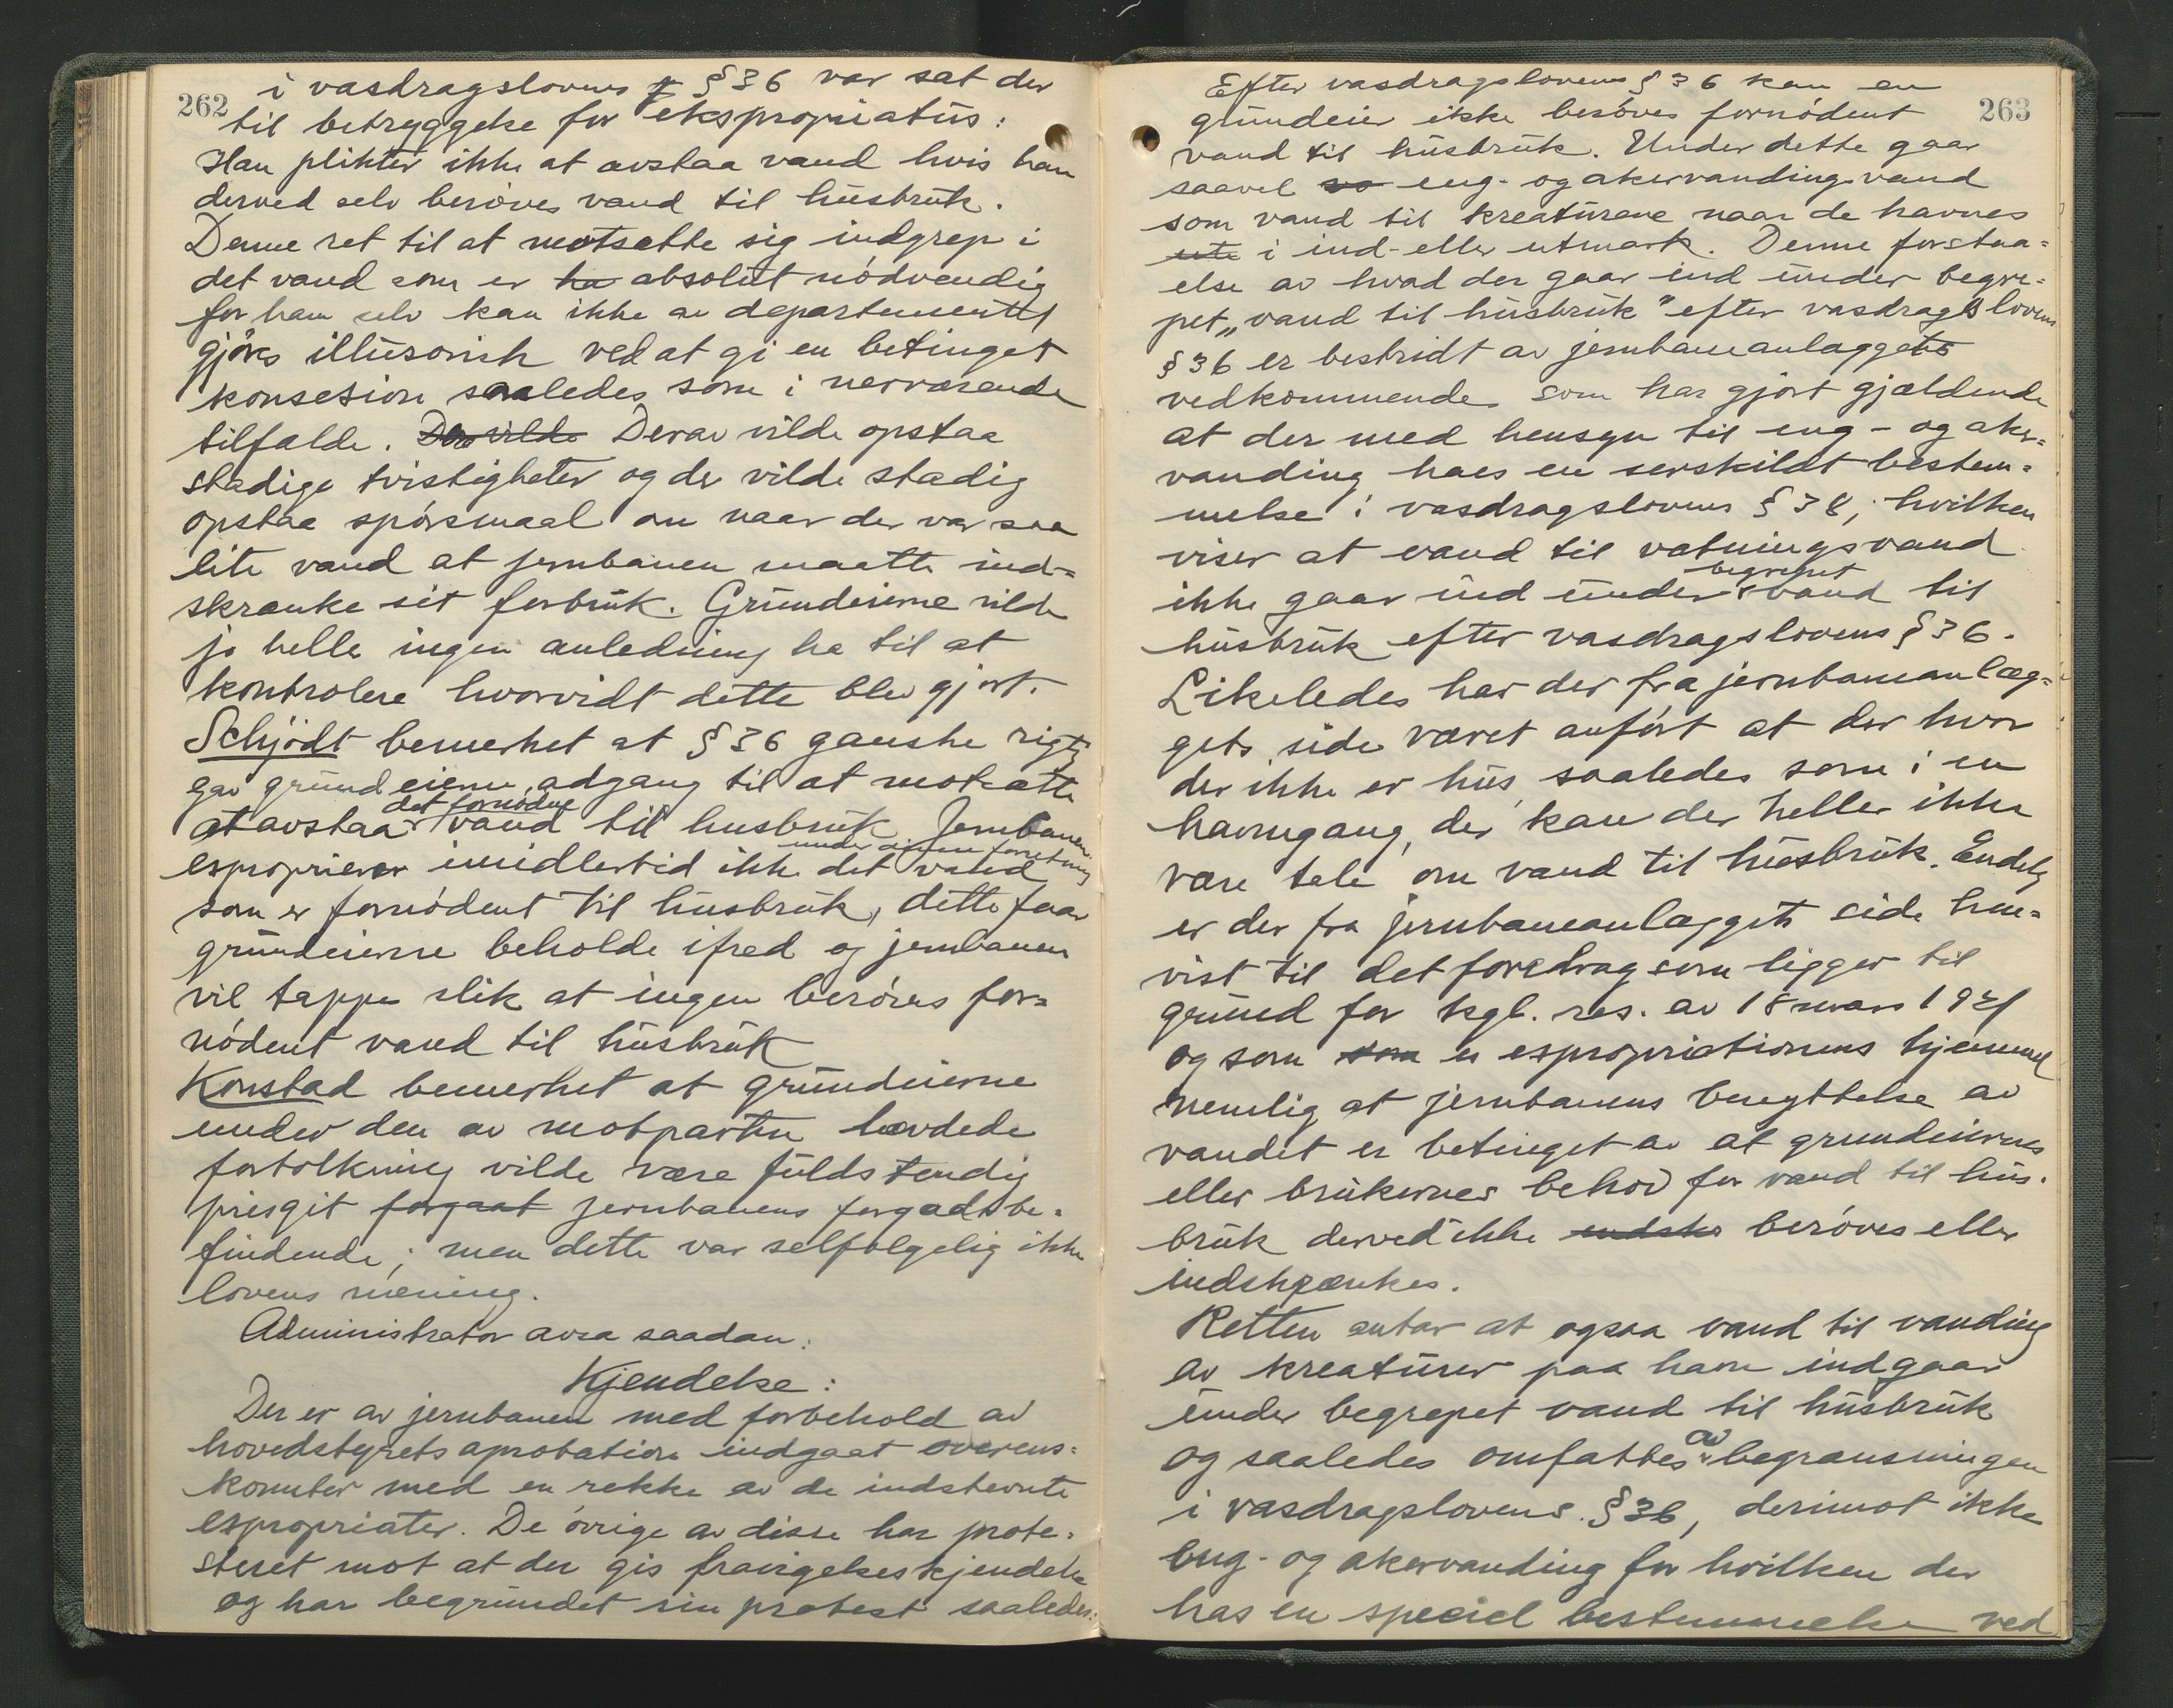 262
i vasdragslovens § 36 var sat der
til betryggelse for ekspropriatus:
Han plikter ikke at avstaa vand hvis han
derved selv berøves vand til husbruk.
Denne ret til at motsætte sig indgrep i
det vand som er ha absolut nødvendig
for ham selv kan ikke av departementet
gjøres illusorisk ved at gi en betinget
konsesion saaledes som i nerværende
tilfælde. Der vilde Derav vilde opstaa
stadige tvistigheter og der vilde stadig
opstaa spørsmaal om naar der var saa
lite vand at jernbanen maatte ind=
skrænke sit forbruk. Grundeierne vilde
jo heller ingen anledning ha til at
kontrolere hvorvidt dette blev gjort.
Schjödt bemerket at § 36 ganske rigtig
gav grundeierne adgang til at motsætte
at avstaa det fornødne vand til husbruk. Jernbanen
esproprierer imidlertid ikke under denne forretning det vand
som er fornødent til husbruk, dette faar
grundeierne beholde ifred og jernbanen
vil tappe slik at ingen berøves for=
nødent vand til husbruk
Konstad bemerket at grundeierne
under den av motparten hævdede
fortolkning vilde være fuldstendig
prisgit forgaat jernbanens forgodtbe=
findende; men dette var selfølgelig ikke
lovens mening.
Administrator avsa saadan:
Kjendelse:
Der er av jernbanen med forbehold av
hovedstyrets aprobation indgaat overens=
komster med en rekke av de indstevnte
espropriater. De øvrige av disse har prote=
steret mot at der gis fravigelseskjendelse
og har begrundet sin protest saaledes:
263
Efter vasdragslovens § 36 kan en
grundeier ikke berøves fornødent
vand til husbruk. Under dette gaar
saavel so eng- og akervandingsvand
som vand til kreaturene naar de havnes
ute i ind- eller utmark. Denne forstaa=
else av hvad der gaar ind under begre=
pet „vand til husbruk" efter vasdragslovens
§ 36 er bestridt av jernbaneanlæggets
vedkommende som har gjort gjældende
at der med hensyn til eng- og aker=
vanding haes en serskildt bestem=
melse i vasdragslovens § 38, hvilken
viser at vand til vatningsvand
ikke gaar ind under begrepet vand til
husbruk efter vasdragslovens § 36.
Likeledes har der fra jernbaneanlæg=
gets side været anført at der hvor
der ikke er hus, saaledes som i en
havnegang, der kan der heller ikke
være tale om vand til husbruk. Endelig
er der fra jernbaneanlæggets side hen=
vist til det foredrag som ligger til
grund for kgl. res. av 18 mars 1921
og som som er espropriationens hjemmel
nemlig at jernbanens benyttelse av
vandet er betinget av at grundeiernes
eller brukernes behov for vand til hus=
bruk derved ikke endske berøves eller
indskrænkes.
Retten antar at ogsaa vand til vanding
av kreaturer paa havn indgaar
under begrepet vand til husbruk
og saaledes omfattes av begrænsningen
i vasdragslovens § 36, derimot ikke
eng- og akervanding for hvilken der
has en speciel bestemmelse ved